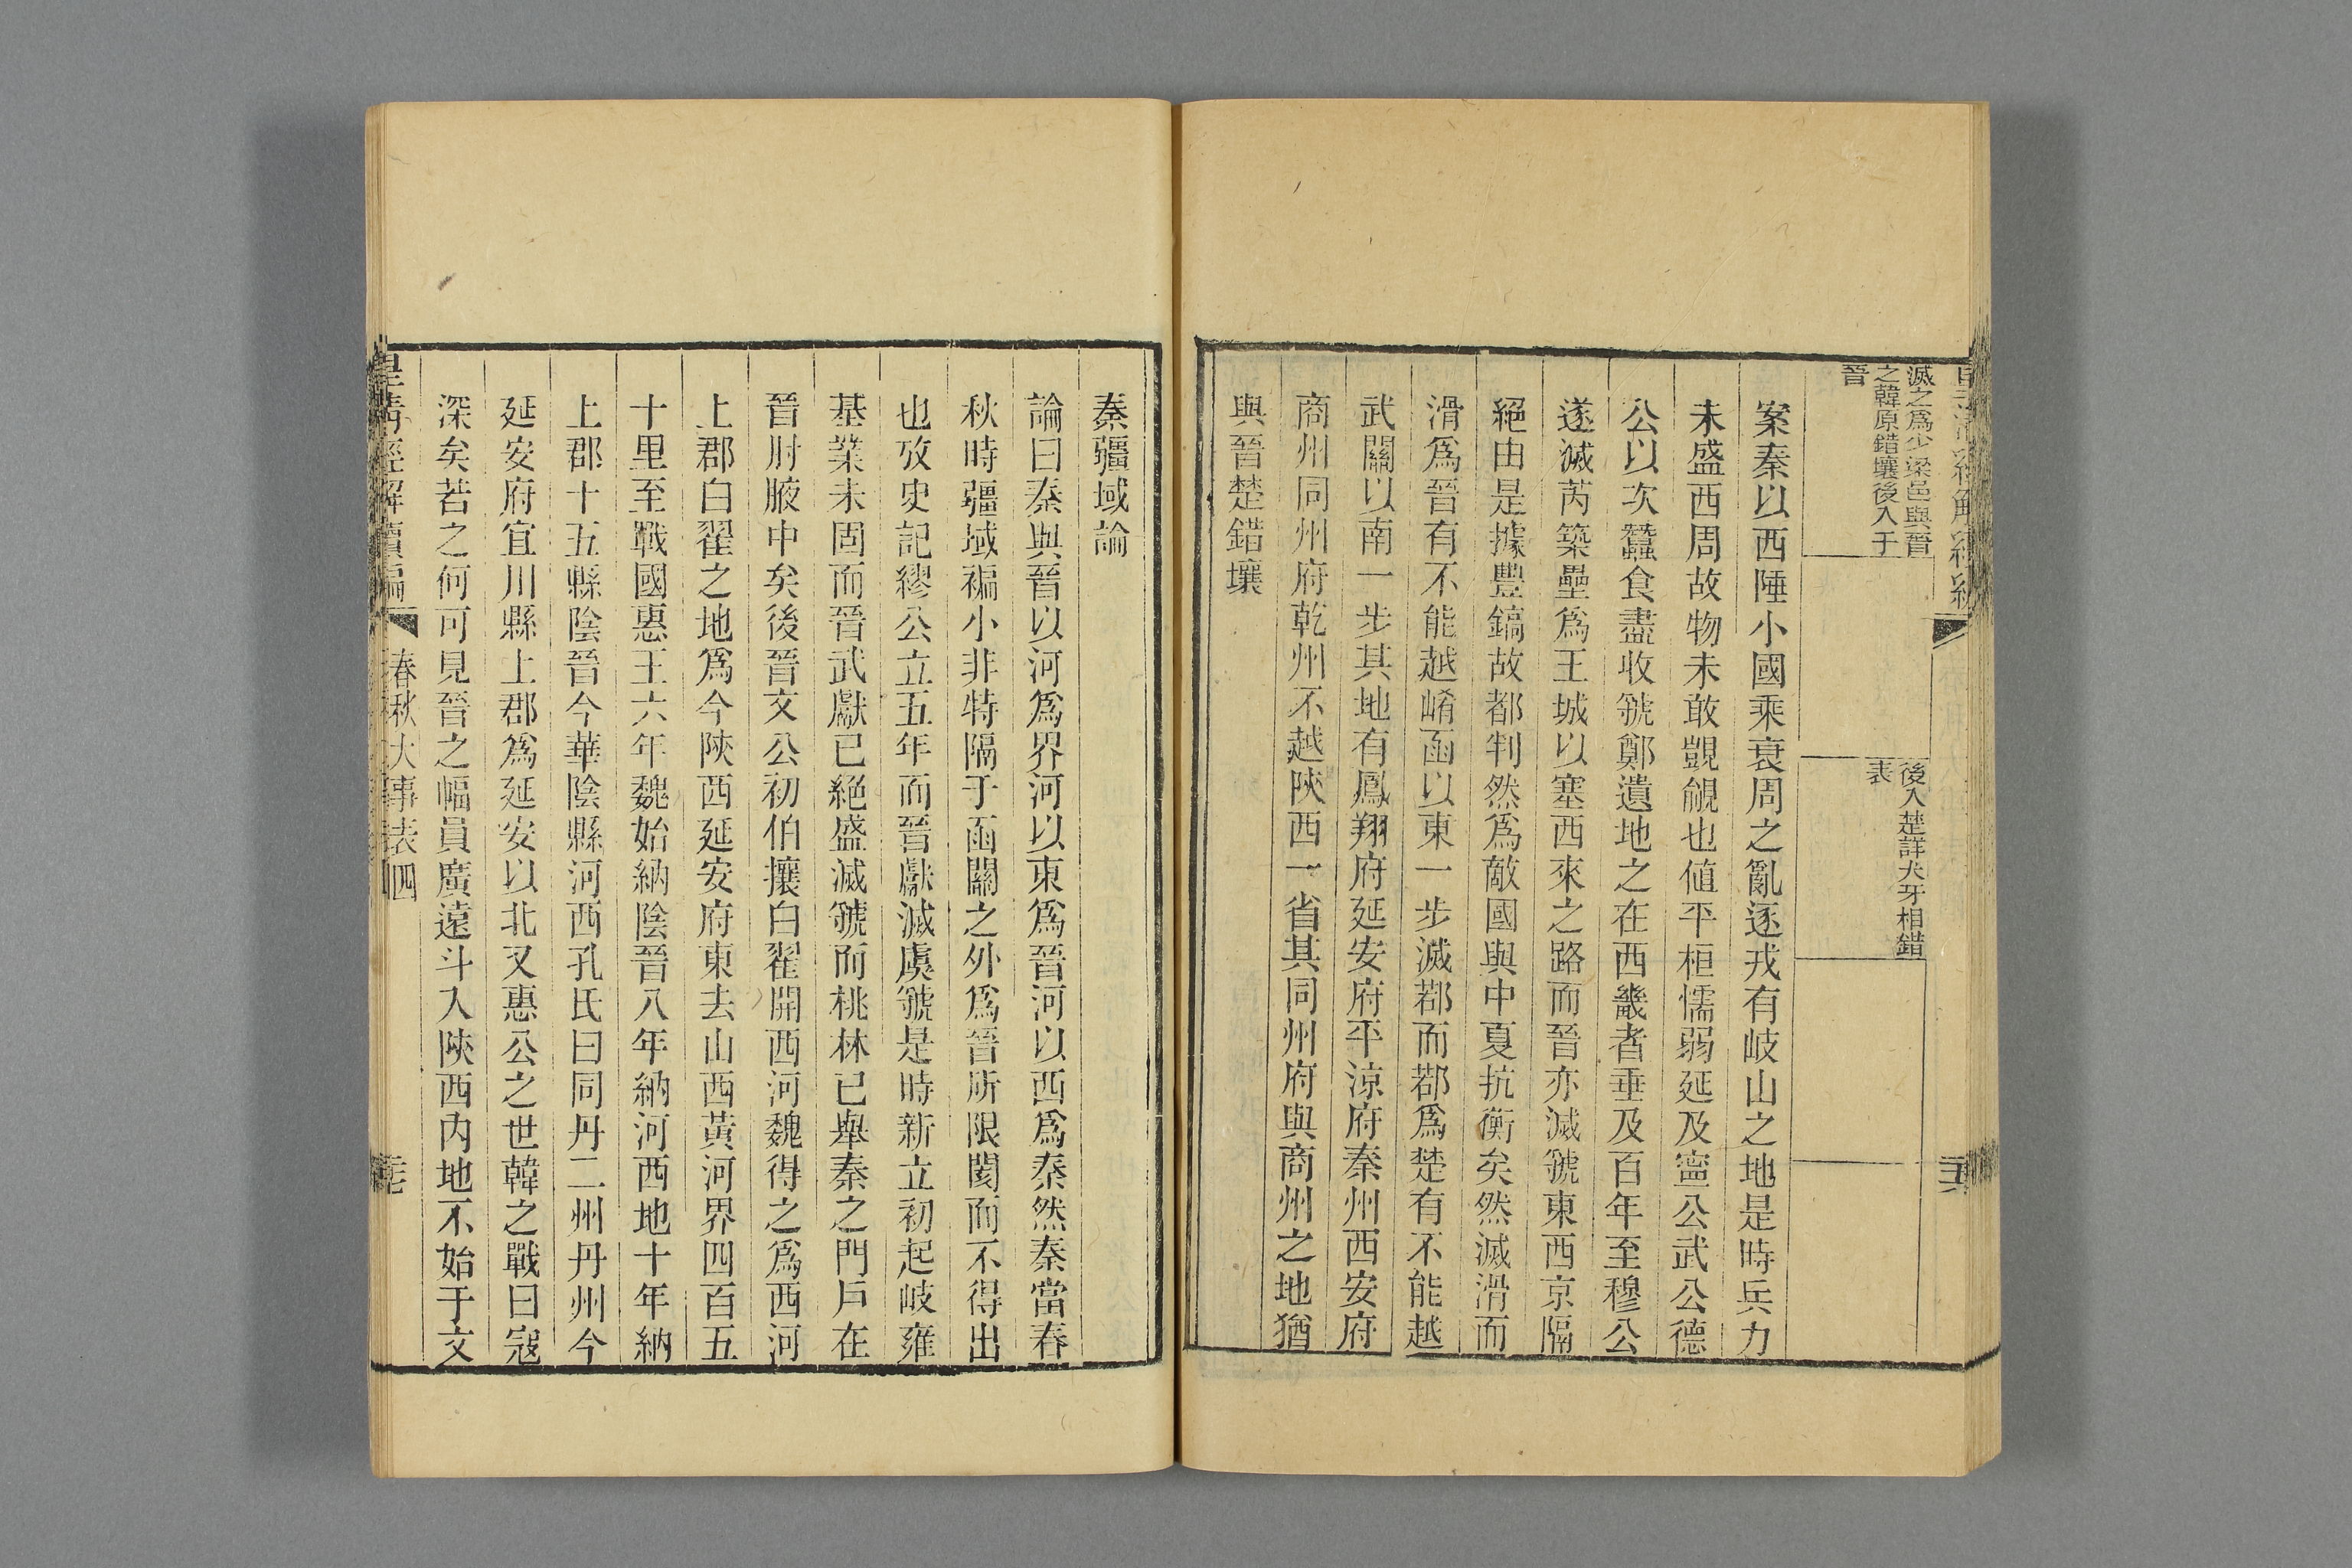 滅之爲少梁邑與晉
之韓原錯壤後入于
晉
後入楚詳犬牙相錯
表
案秦以西陲小國乘衰周之亂逐戎有岐山之地是時兵力
未盛西周故物未敢覬覦也値平桓懦弱延及寍公武公德
公以次蠶食盡收虢鄭遺地之在西畿者垂及百年至穆公
遂滅芮築壘爲王城以塞西來之路而晉亦滅虢東西京隔
絕由是據豐鎬故都判然爲敵國與中夏抗衡矣然滅滑而
滑爲晉有不能越崤函以東一步滅鄀而鄀爲楚有不能越
武關以南一步其地有鳳翔府延安府平涼府秦州西安府
商州同州府乾州不越陝西一省其同州府與商州之地猶
與晉楚錯壤
秦疆域論
論曰秦與晉以河爲界河以東爲晉河以西爲秦然秦當春
秋時疆域褊小非特隔于函關之外爲晉所限閡而不得出
也攷史記繆公立五年而晉獻滅虞虢是時新立初起岐雍
基業未固而晉武獻已絕盛滅虢而桃林已舉秦之門戶在
晉肘腋中矣後晉文公初伯攘白翟開西河魏得之爲西河
上郡白翟之地爲今陝西延安府東去山西黃河界四百五
十里至戰國惠王六年魏始納陰晉八年納河西地十年納
上郡十五縣陰晉今華陰縣河西孔氏曰同丹二州丹州今
延安府宜川縣上郡爲延安以北又惠公之世韓之戰曰寇
深矣若之何可見晉之幅員廣遠斗入陝西內地不始于文
皇清經解續編 春秋大事表四